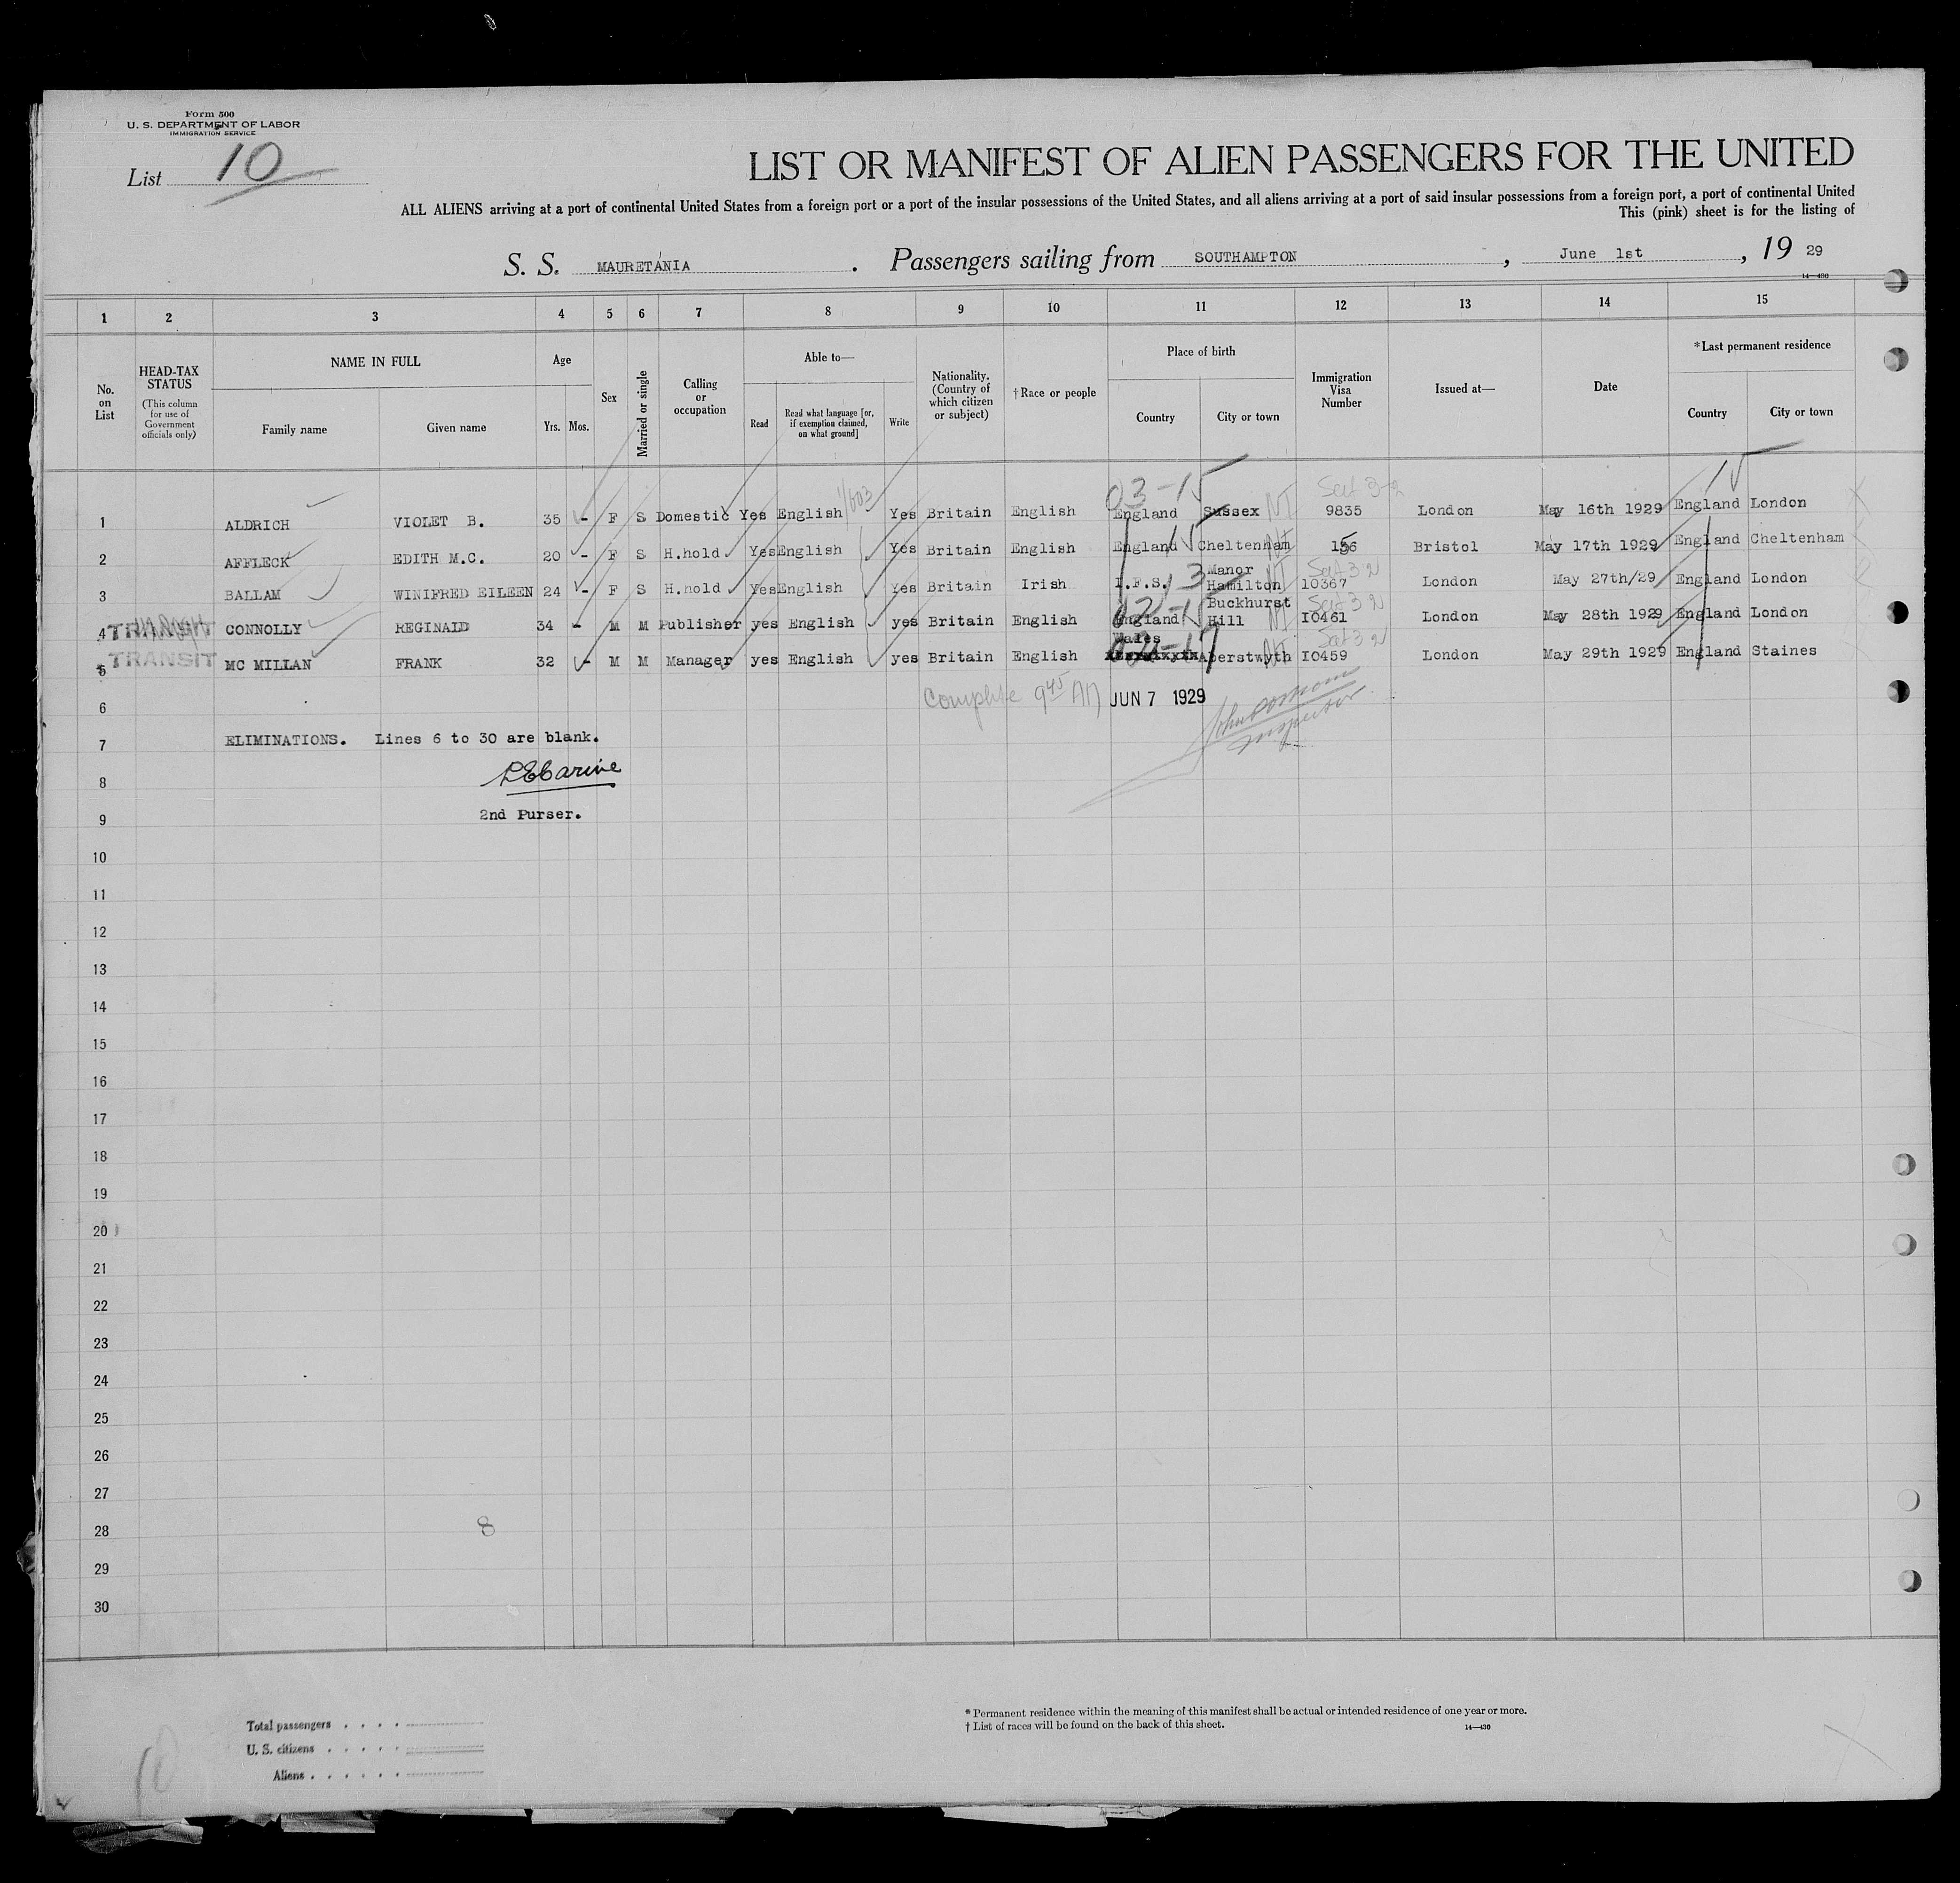 Form 500
U. S. DEPARTMENT OF LABOR
IMMIGRATION SERVICE
List 10
LIST OR MANIFEST OF ALIEN PASSENGERS FOR THE UNITED
ALL ALIENS arriving at a port of continental United States from a foreign port or a port of the insular possessions of the United States, and all aliens arriving at a port of said insular possessions from a foreign port, a port of continental United
This (pink) sheet is for the listing of
S. S. MAURETANIA . Passengers sailing from SOUTHAMPTON , June 1st , 19 29
14—430
1 2 3 4 5 6 7 8 9 10 11 12 13 14 15
No. on List
HEAD-TAX STATUS (This column for use of Government officials only)
NAME IN FULL
Family name Given name
Age
Yrs. Mos.
Sex
Married or single
Calling or occupation
Able to—
Read Read what language [or, if exemption claimed, on what ground] Write
Nationality. (Country of which citizen or subject)
†Race or people
Place of birth
Country City or town
Immigration Visa Number
Issued at—
Date
*Last permanent residence
Country City or town
03-15 15
1 ALDRICH VIOLET B. 35 - F S Domestic Yes English Yes Britain English England Sussex NI 9835 London May 16th 1929 England London
2 AFFLECK EDITH M.C. 20 - F S H.hold Yes English Yes Britain English England Cheltenham 156 Bristol May 17th 1929 England Cheltenham
3 BALLAM WINIFRED EILEEN 24 - F S H.hold Yes English Yes Britain Irish I.F.S. Manor Hamilton 10367 London May 27th/29 England London
4 TRANSIT CONNOLLY REGINALD 34 - M M Publisher yes English yes Britain English England Buckhurst Hill I0461 London May 28th 1929 England London
5 TRANSIT MC MILLAN FRANK 32 - M M Manager yes English yes Britain English Wales Aberstwyth I0459 London May 29th 1929 England Staines
6 Complete 9 45 AM JUN 7 1929
Inspector
7 ELIMINATIONS. Lines 6 to 30 are blank.
8
9 2nd Purser.
10
11
12
13
14
15
16
17
18
19
20
21
22
23
24
25
26
27
28 8
29
30
Total passengers . . . .
U. S. citizens . . . . .
Aliens . . . . . .
10
* Permanent residence within the meaning of this manifest shall be actual or intended residence of one year or more.
† List of races will be found on the back of this sheet.
14—430